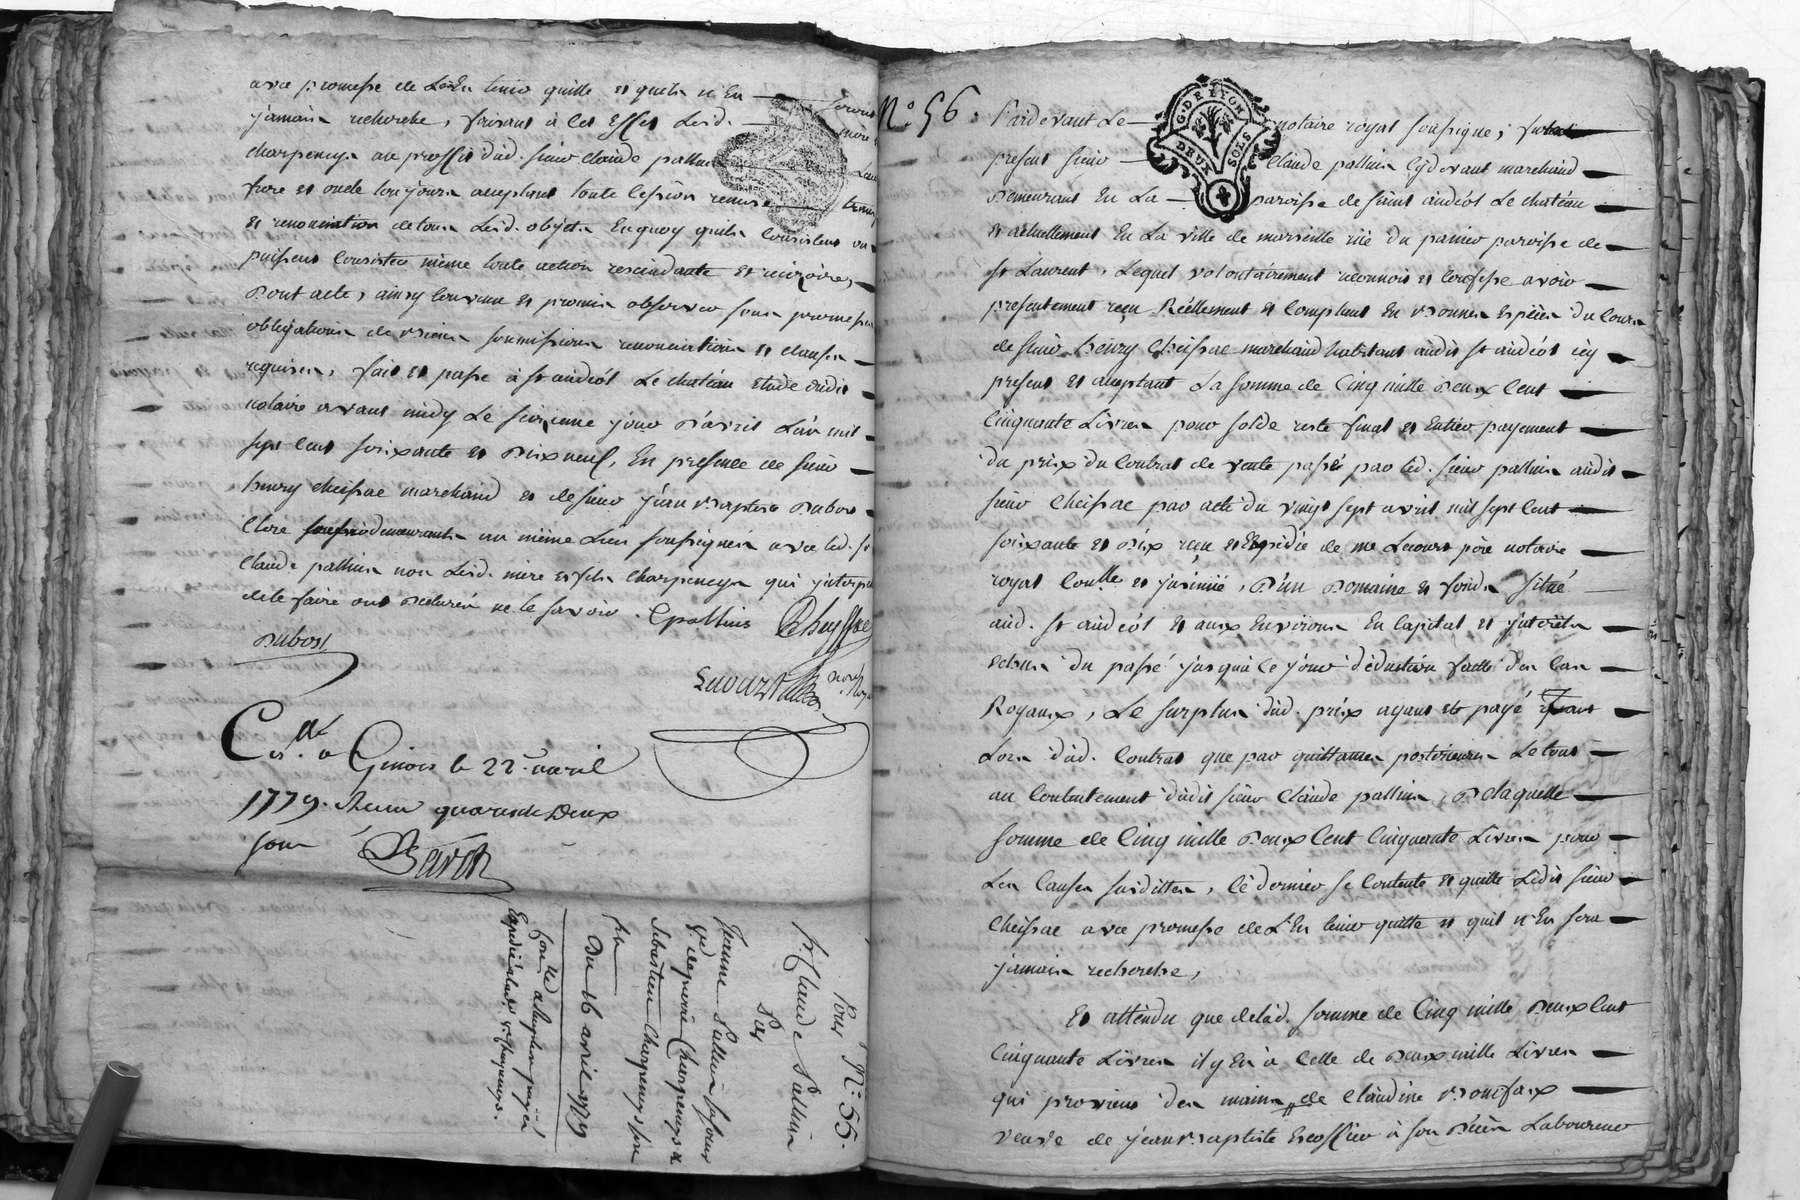 avec promesse de L'En tenir quitte et qu'ils n'En seront
jamais recherchés, faisant à ces effets Lesd. mere
charpeneys au proffit dud. sieur claude palluis Leur
frere et oncle toujours acceptant toute cession remise
et renonciation de tous Lesd. objets En quoy qu'ils Consistent ou
puissent Consister même toute action rescindante et rescisoire,
Dont acte, ainsy Convenu et promis observer sous promesses
obligations de biens soumissions renonciations et clauses
requises, fait et passé à st andéol Le chatéau Etude dudit
notaire avant midy Le seizieme jour d'avril L'an mil
sept Cent soixante et Dix neuf, En presence de sieur
henry cheissac marchand et de sieur jean Baptiste Dubost
Clerc demeurants au même Lieu soussignés avec led. sr
Claude palluis non Lesd. mere et fils charpeneys qui
de le faire ont Déclaré ne le savoir. Cpalluis Cheyssac
Dubost
Lecourt
Cllé a Givors le 22e. avril
1779. Reçu quarante Deux
sous Baron
Pour N.° 55.
sr. Claude Palluis
Par
Jeanne Palluis
ve de pierre Charpeneys et
Sebastien Charpeneys son
fils
Du 16 avril 1779
Expédié à lad. ve Charpeneys.
N.° 56.
G. DE LYON
DEUX SOLS
Pardevant Le notaire royal soussigné, fut
présent sieur Claude palluis cydevant marchand
Demeurant En La paroisse de saint andéol Le chatéau
et actuellement En La ville de marseille rüe du panier paroisse de
st Laurent, Lequel volontairement reconnoit et Confesse avoir
présentement reçu Réellement et Comptant En Bonnes Espèces du Cours
de sieur henry Cheissac marchand habitant audit st andéol icy
present et acceptant La somme de Cinq mille Deux Cent
Cinquante Livres pour solde reste final et Entier payement
du prix du Contrat de vente passé par led. sieur palluis audit
sieur Cheissac par acte du vingt sept avril mil sept Cent
soixante et Dix reçu et Expédié de me Lecourt père notaire
royal Conllé et jnsinüé, D'un Domaine et fonds situé
aud. st andéol et aux Environs En Capital et jnterêts
échus du passé jusqu'à ce jour déduction faite des Cas
Royaux, Le surplus dud. prix ayant été payé tant
Lors dud. Contrat que par quittances postérieures Le tout
au Contentement dudit sieur Claude palluis, De laquelle
somme de Cinq mille Deux Cent Cinquante Livres pour
Les Causes susdittes, Ce dernier se Contente et quitte Ledit sieur
Cheissac avec promesse de L'En tenir quitte et qu'il n'En sera
jamais recherché,
Et attendu que de lad. somme de Cinq mille Deux Cent
Cinquante Livres il y En à Celle de Deux mille Livres
qui provient des mains de Claudine Bonifaix
veuve de jean Baptiste Escoffier à son Décès Laboureur